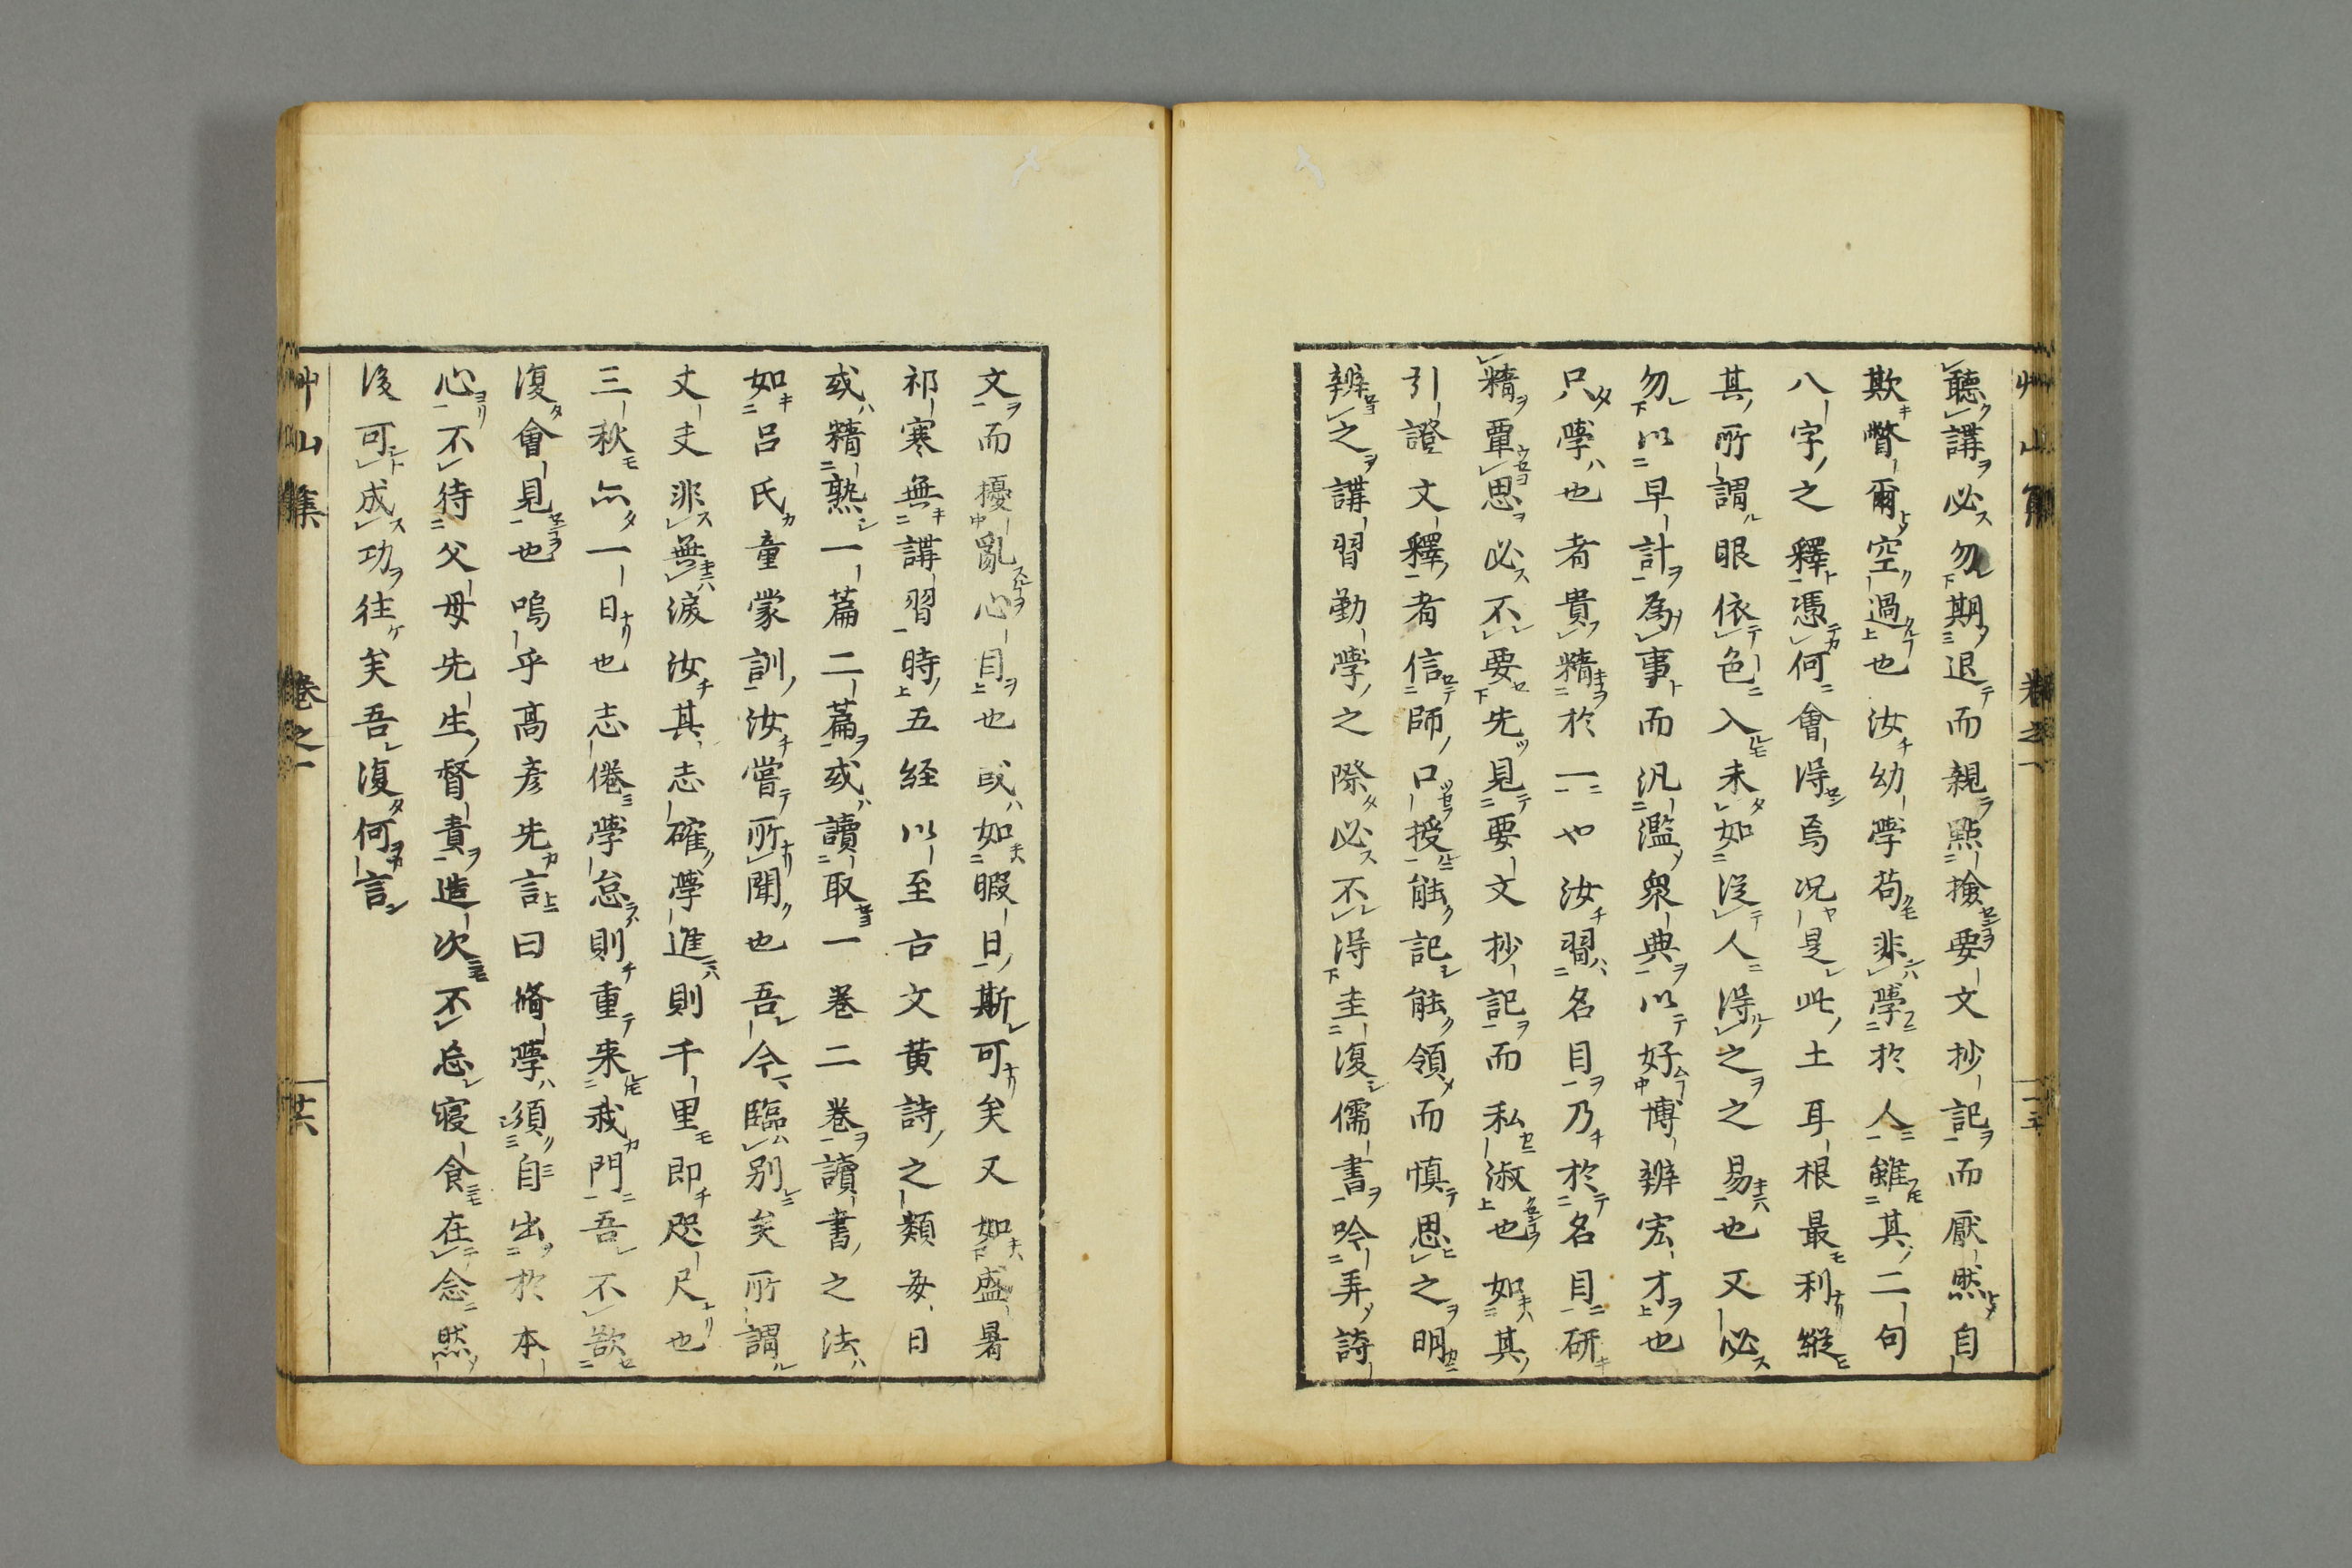 聽講必勿期退而親點撿要文抄記而厭然自
欺瞥爾空過也汝幼學苟非學於人雖其二句
八字之釋憑何會得焉況是此土耳根最利縱
其所謂眼依色入未如從人得之之易也又必
勿以早計為事而汎濫衆典以好博辨宏才也
只學也者貴精於一也汝習名目乃於名目研
精覃思必不要先見要文抄記而私淑也如其
引證文釋者信師口授能記能領而慎思之明
辨之講習勤學之際必不得圭復儒書吟弄詩
文而擾亂心目也或如暇日斯可矣又如盛暑
祁寒無講習時五経以至古文黄詩之類每日
或精熟一篇二篇或讀取一巻二巻讀書之法
如呂氏童蒙訓汝嘗所聞也吾今臨別矣所謂
丈夫非無淚汝其志確學進則千里即咫尺也
三秋亦一日也志倦學怠則重来我門吾不欲
復會見也嗚乎高彦先言曰脩學須自出於本
心不待父母先生督責造次不忘寝食在念然
後可成功往矣吾復何言
艸山集 巻之一 廿六